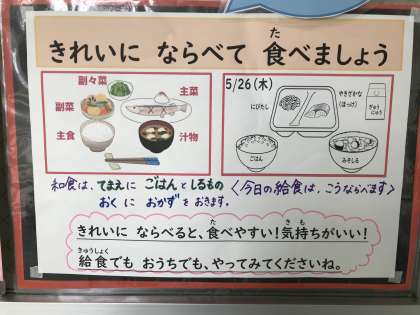 きれいに ならべて 食べましょう
た
副々菜
主菜
副菜
主食
汁物
5/26(木)
にびたし
やきざかな
(ほっけ)
ぎゅうにゅう
ごはん
みそしる
和食は、てまえに ごはんと しるもの
おくに おかずを おきます。
<今日の給食は、こうならべます>
きれいに ならべると、食べやすい!気持ちがいい!
た
きも
給食でも おうちでも、やってみてくださいね。
きゅうしょく